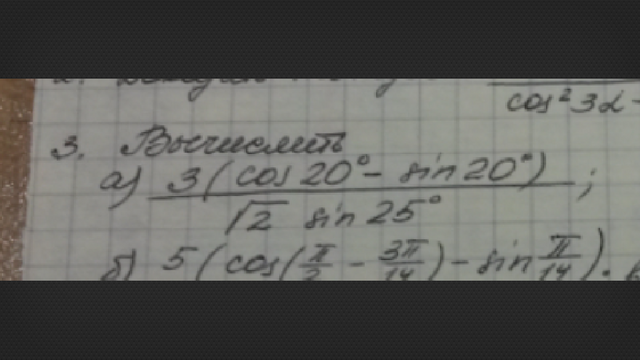 cos² 3α -
3. Вычислить
а) 3(cos 20° - sin 20°) / √2 sin 25° ;
б) 5(cos(π/2 - 3π/14) - sin π/14) ·